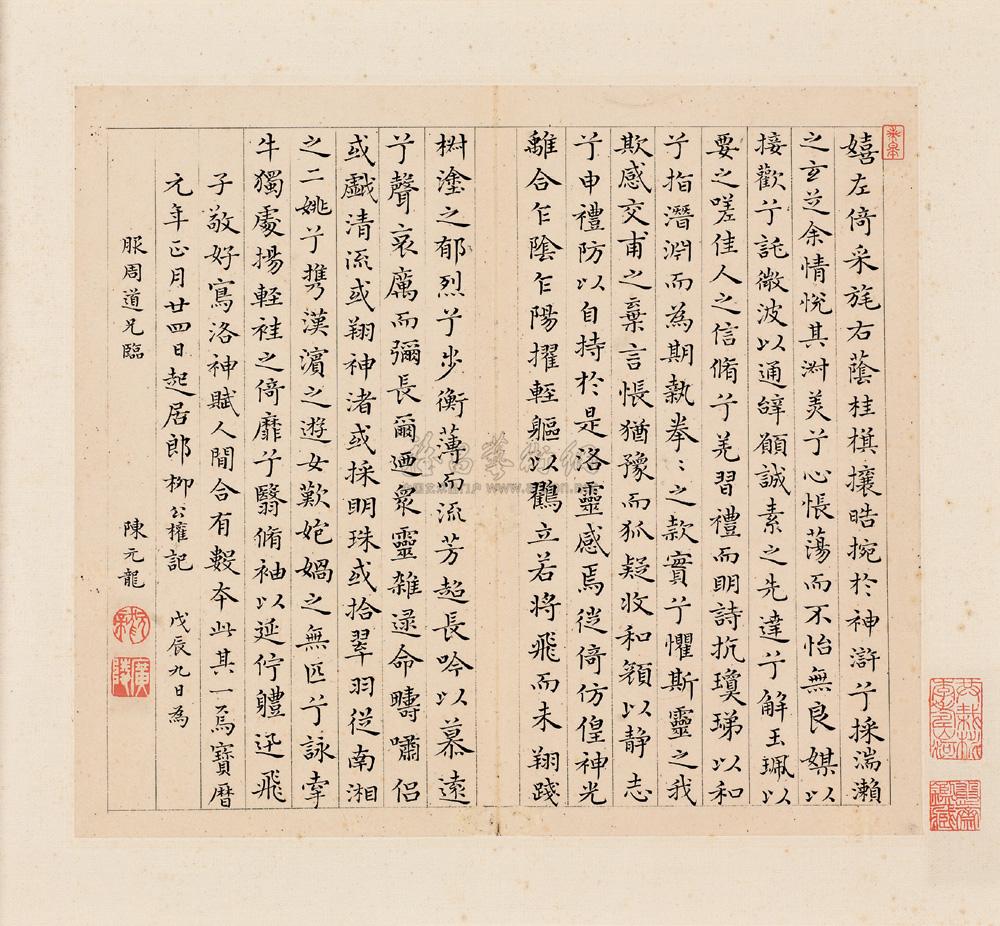 嬉左倚采旄右蔭桂旗攘皓捥於神滸兮採湍瀨
之玄芝余情悅其淑美兮心悵蕩而不怡無良媒以
接歡兮託微波以通辝願誠素之先達兮解玉珮以
要之嗟佳人之信脩兮羌習禮而明詩抗瓊珶以和
予指潛淵而為期執拳〻之款實兮懼斯靈之我
欺感交甫之棄言悵猶豫而狐疑收和顏以靜志
兮申禮防以自持於是洛靈感焉徙倚仿偟神光
離合乍陰乍陽擢輕軀以鸖立若將飛而未翔踐
椒塗之郁烈兮步衡薄而流芳超長吟以慕遠
兮聲哀厲而彌長爾迺眾靈雜遝命疇嘯侶
或戲清流或翔神渚或採明珠或拾翠羽從南湘
之二姚兮攜漢濱之遊女歎㚿媧之無匹兮詠牽
牛獨處揚輕袿之倚靡兮翳脩袖以延佇軆迅飛
子敬好寫洛神賦人間合有數本此其一焉寶曆
元年正月廿四日起居郎柳公權記 戊辰九日為
服周道兄臨 陳元龍